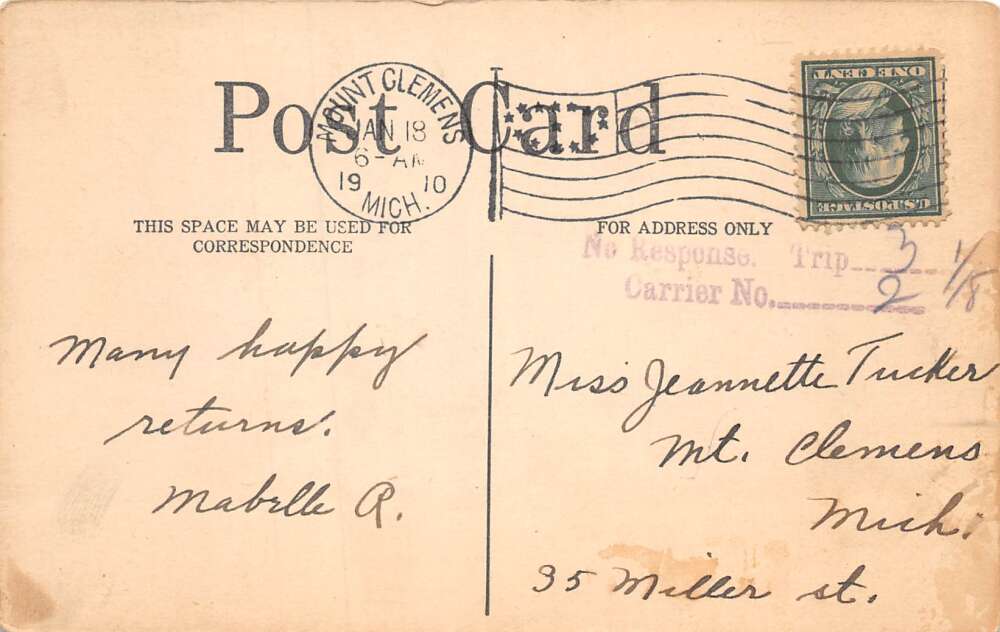 Post Card
MOUNT CLEMENS
JAN 18
6-AM
19 10
MICH.
ONE CENT
U.S. POSTAGE
THIS SPACE MAY BE USED FOR
CORRESPONDENCE
FOR ADDRESS ONLY
No Response. Trip 3 1/18
Carrier No. 2
Many happy
returns.
Mabelle R.
Miss Jeannette Tucker
Mt. Clemens
Mich.
35 Miller st.